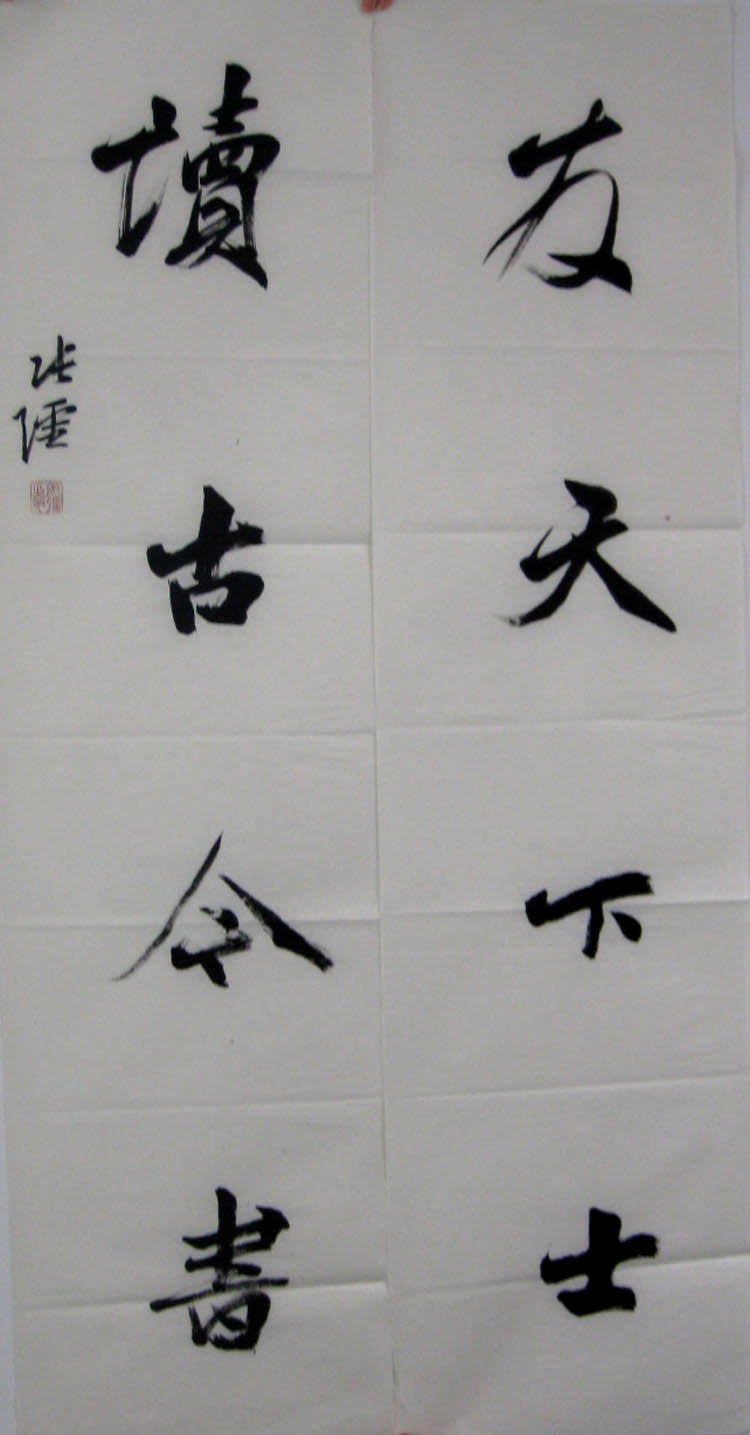 友天下士
讀古今書